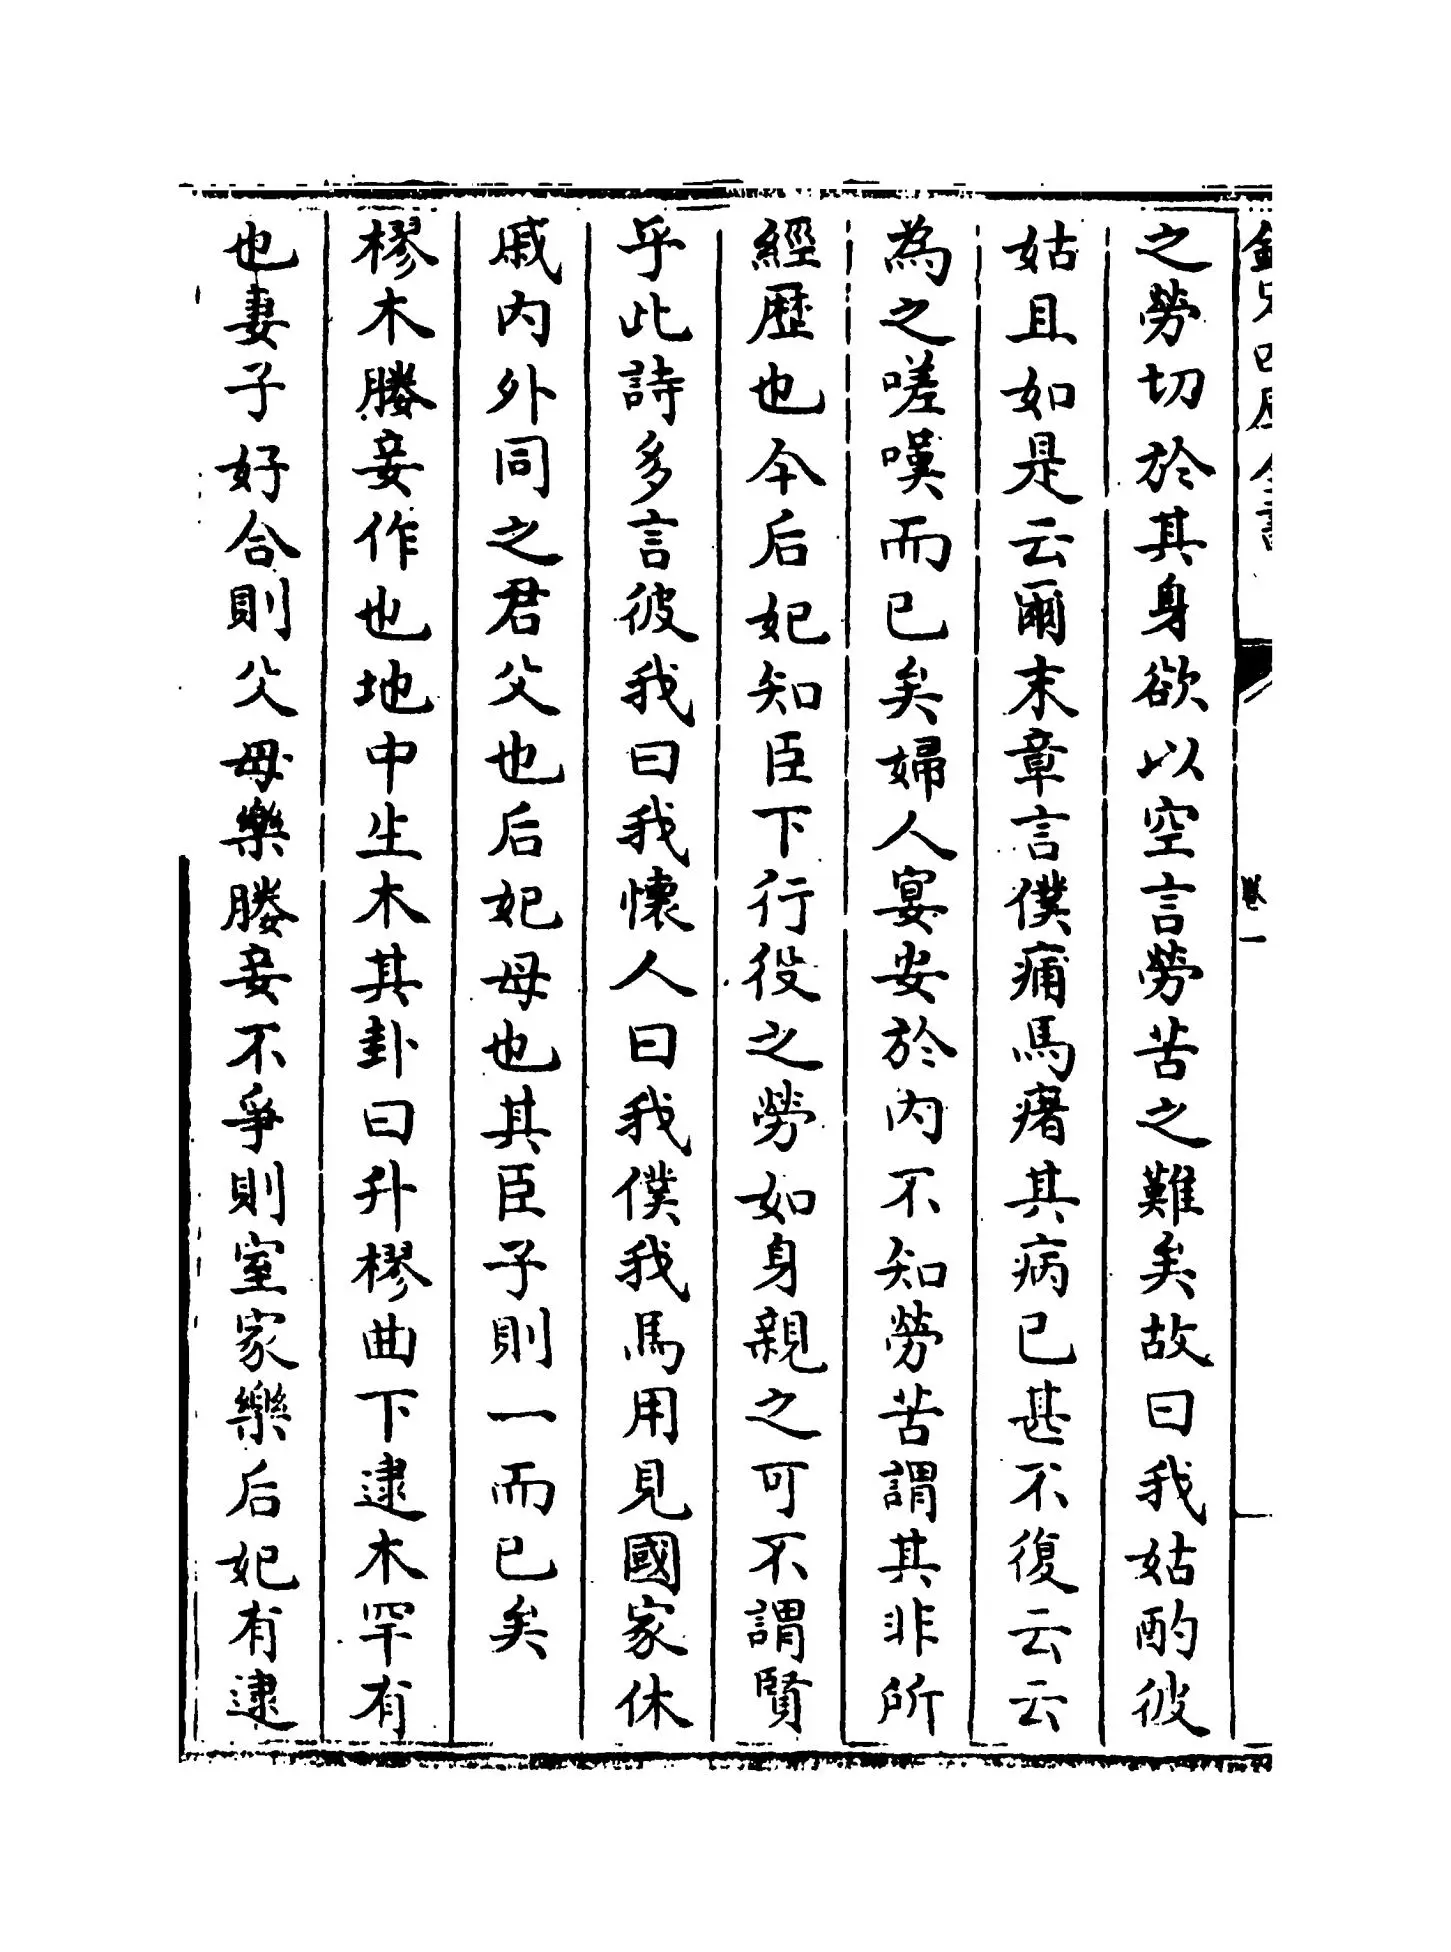 之勞切於其身欲以空言勞苦之難矣故曰我姑酌彼
姑且如是云爾末章言僕痡馬瘏其病已甚不復云云
為之嗟嘆而已矣婦人宴安於内不知勞苦謂其非所
經歴也今后妃知臣下行役之勞如身親之可不謂賢
乎此詩多言彼我曰我懷人曰我僕我馬用見國家休
戚内外同之君父也后妃母也其臣子則一而已矣
樛木媵妾作也地中生木其卦曰升樛曲下逮木罕有
也妻子好合則父母樂媵妾不爭則室家樂后妃有逮